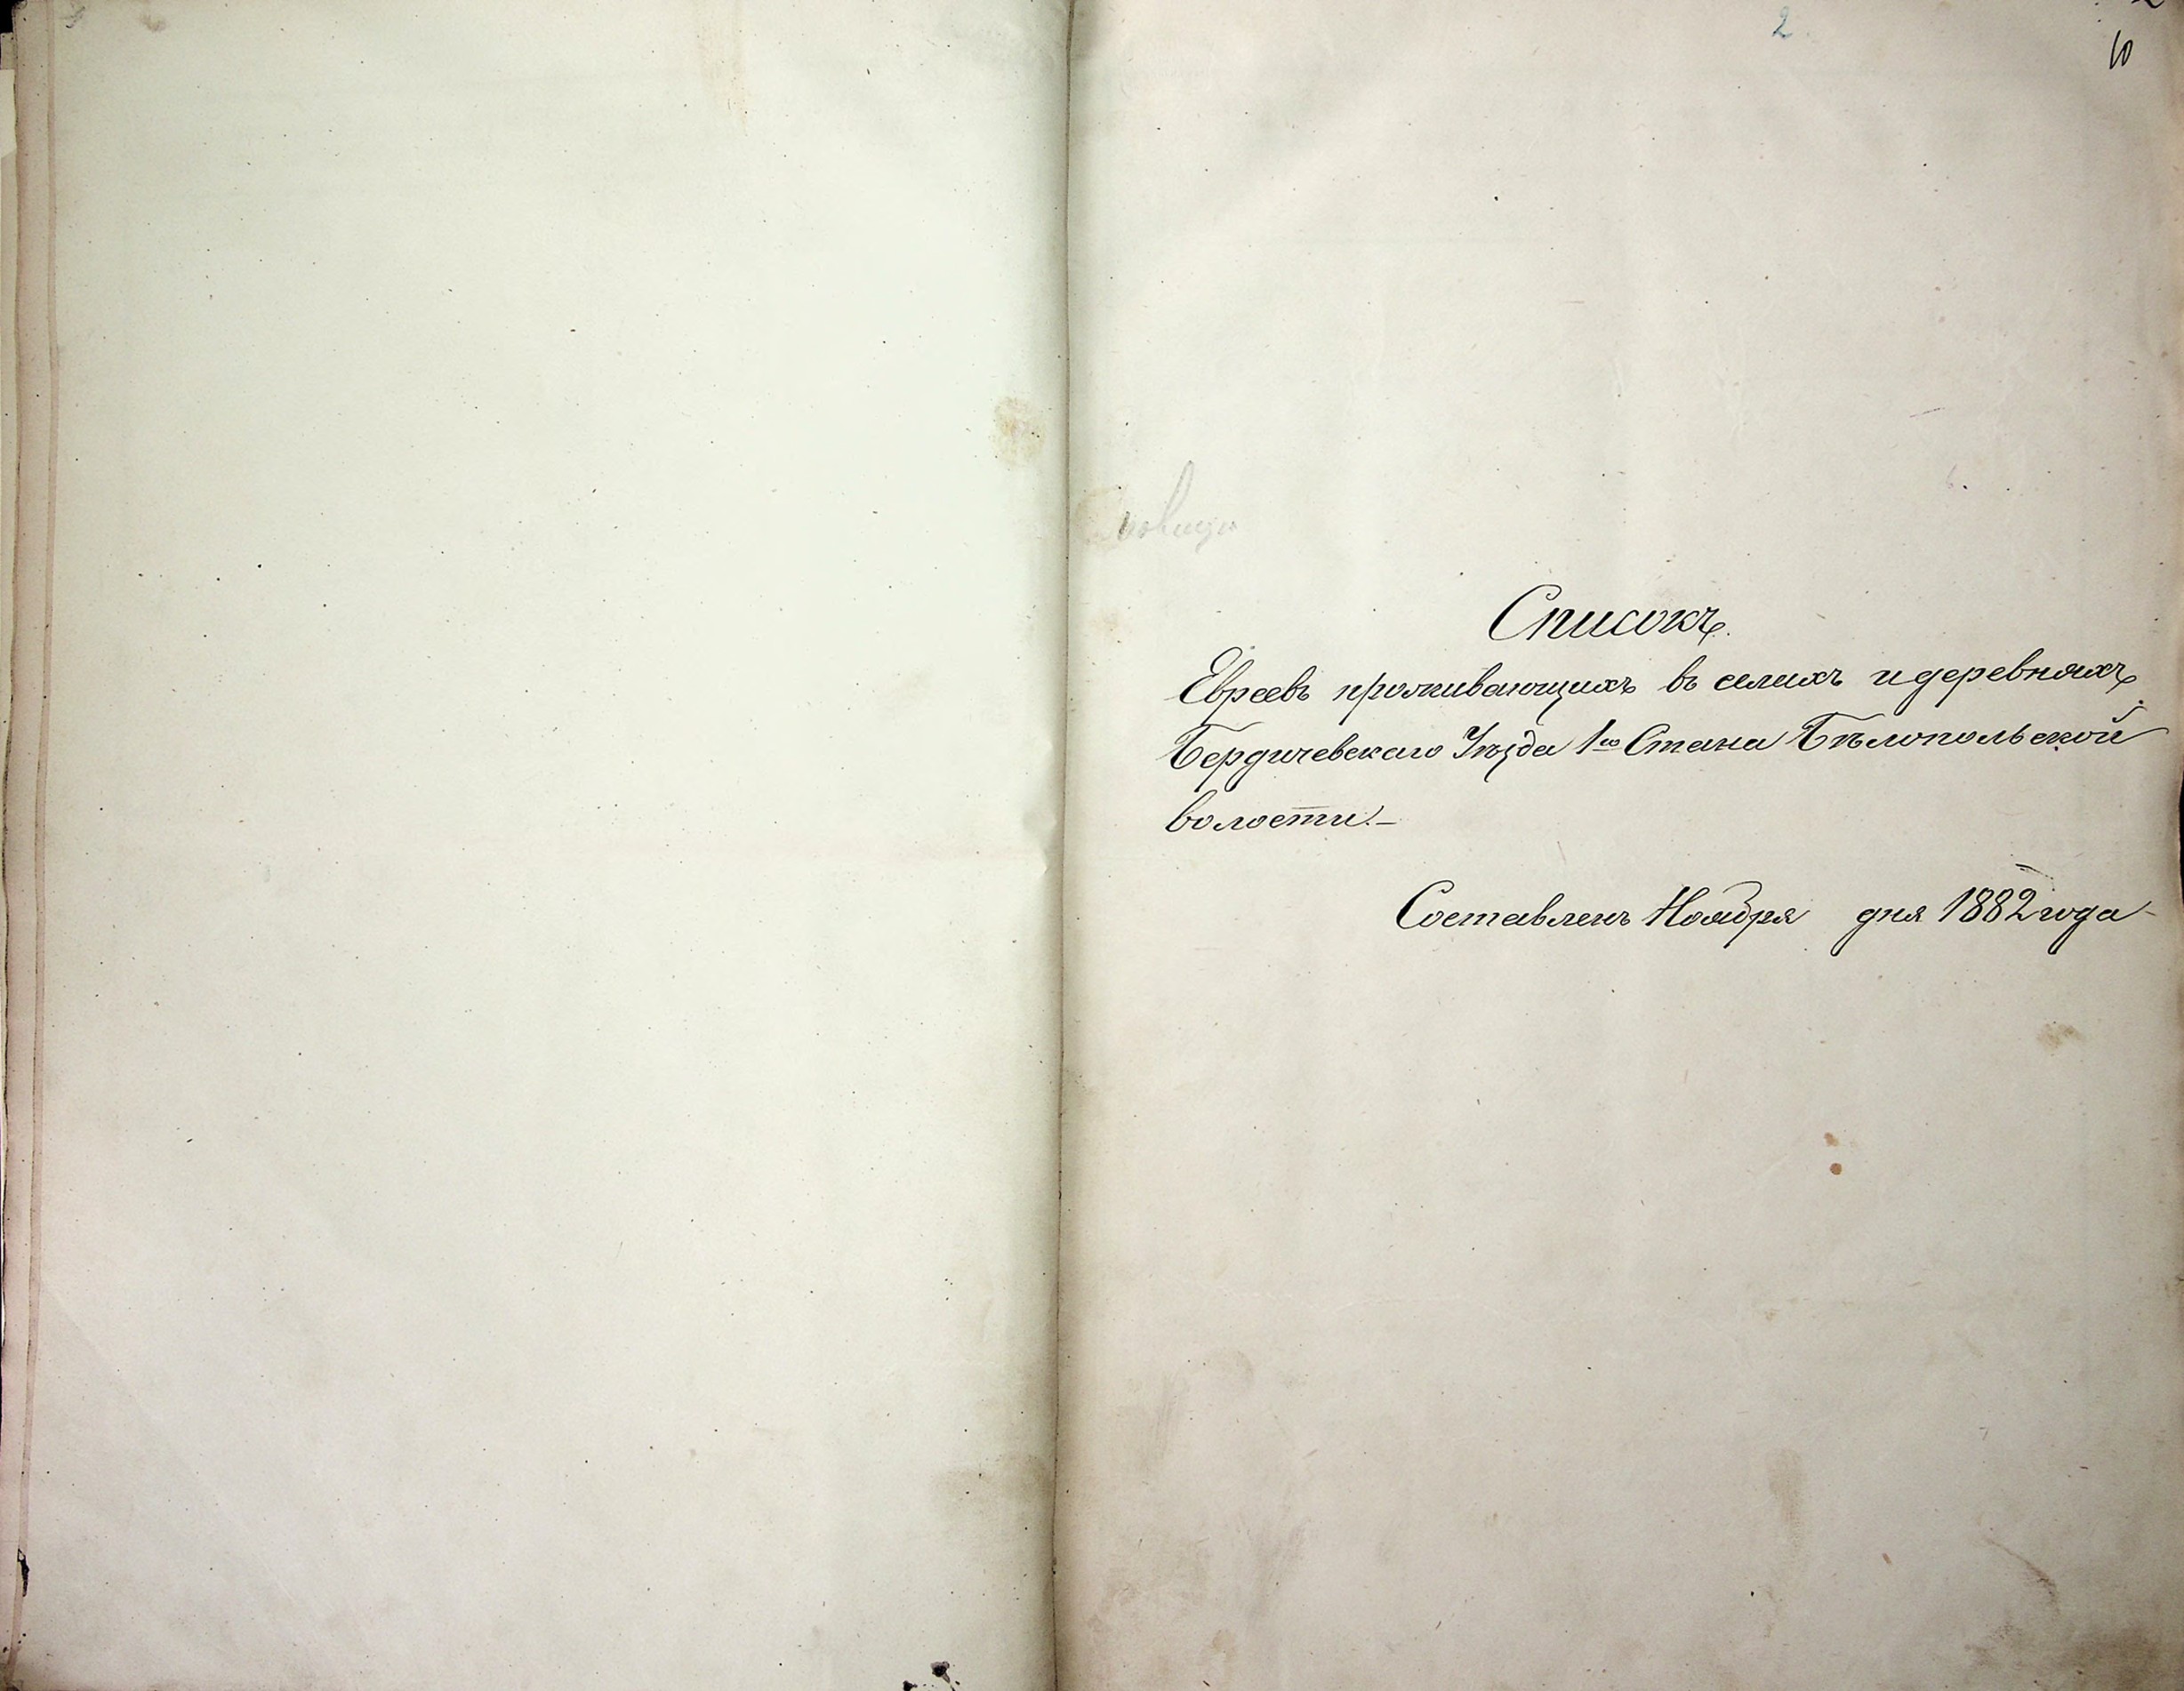 2
10
Списокъ.
Евреевъ проживающихъ въ селахъ и деревняхъ
Бердичевскаго Уѣзда 1го Стана Бѣлопольской
волости.—
Составленъ Ноября дня 1882 года